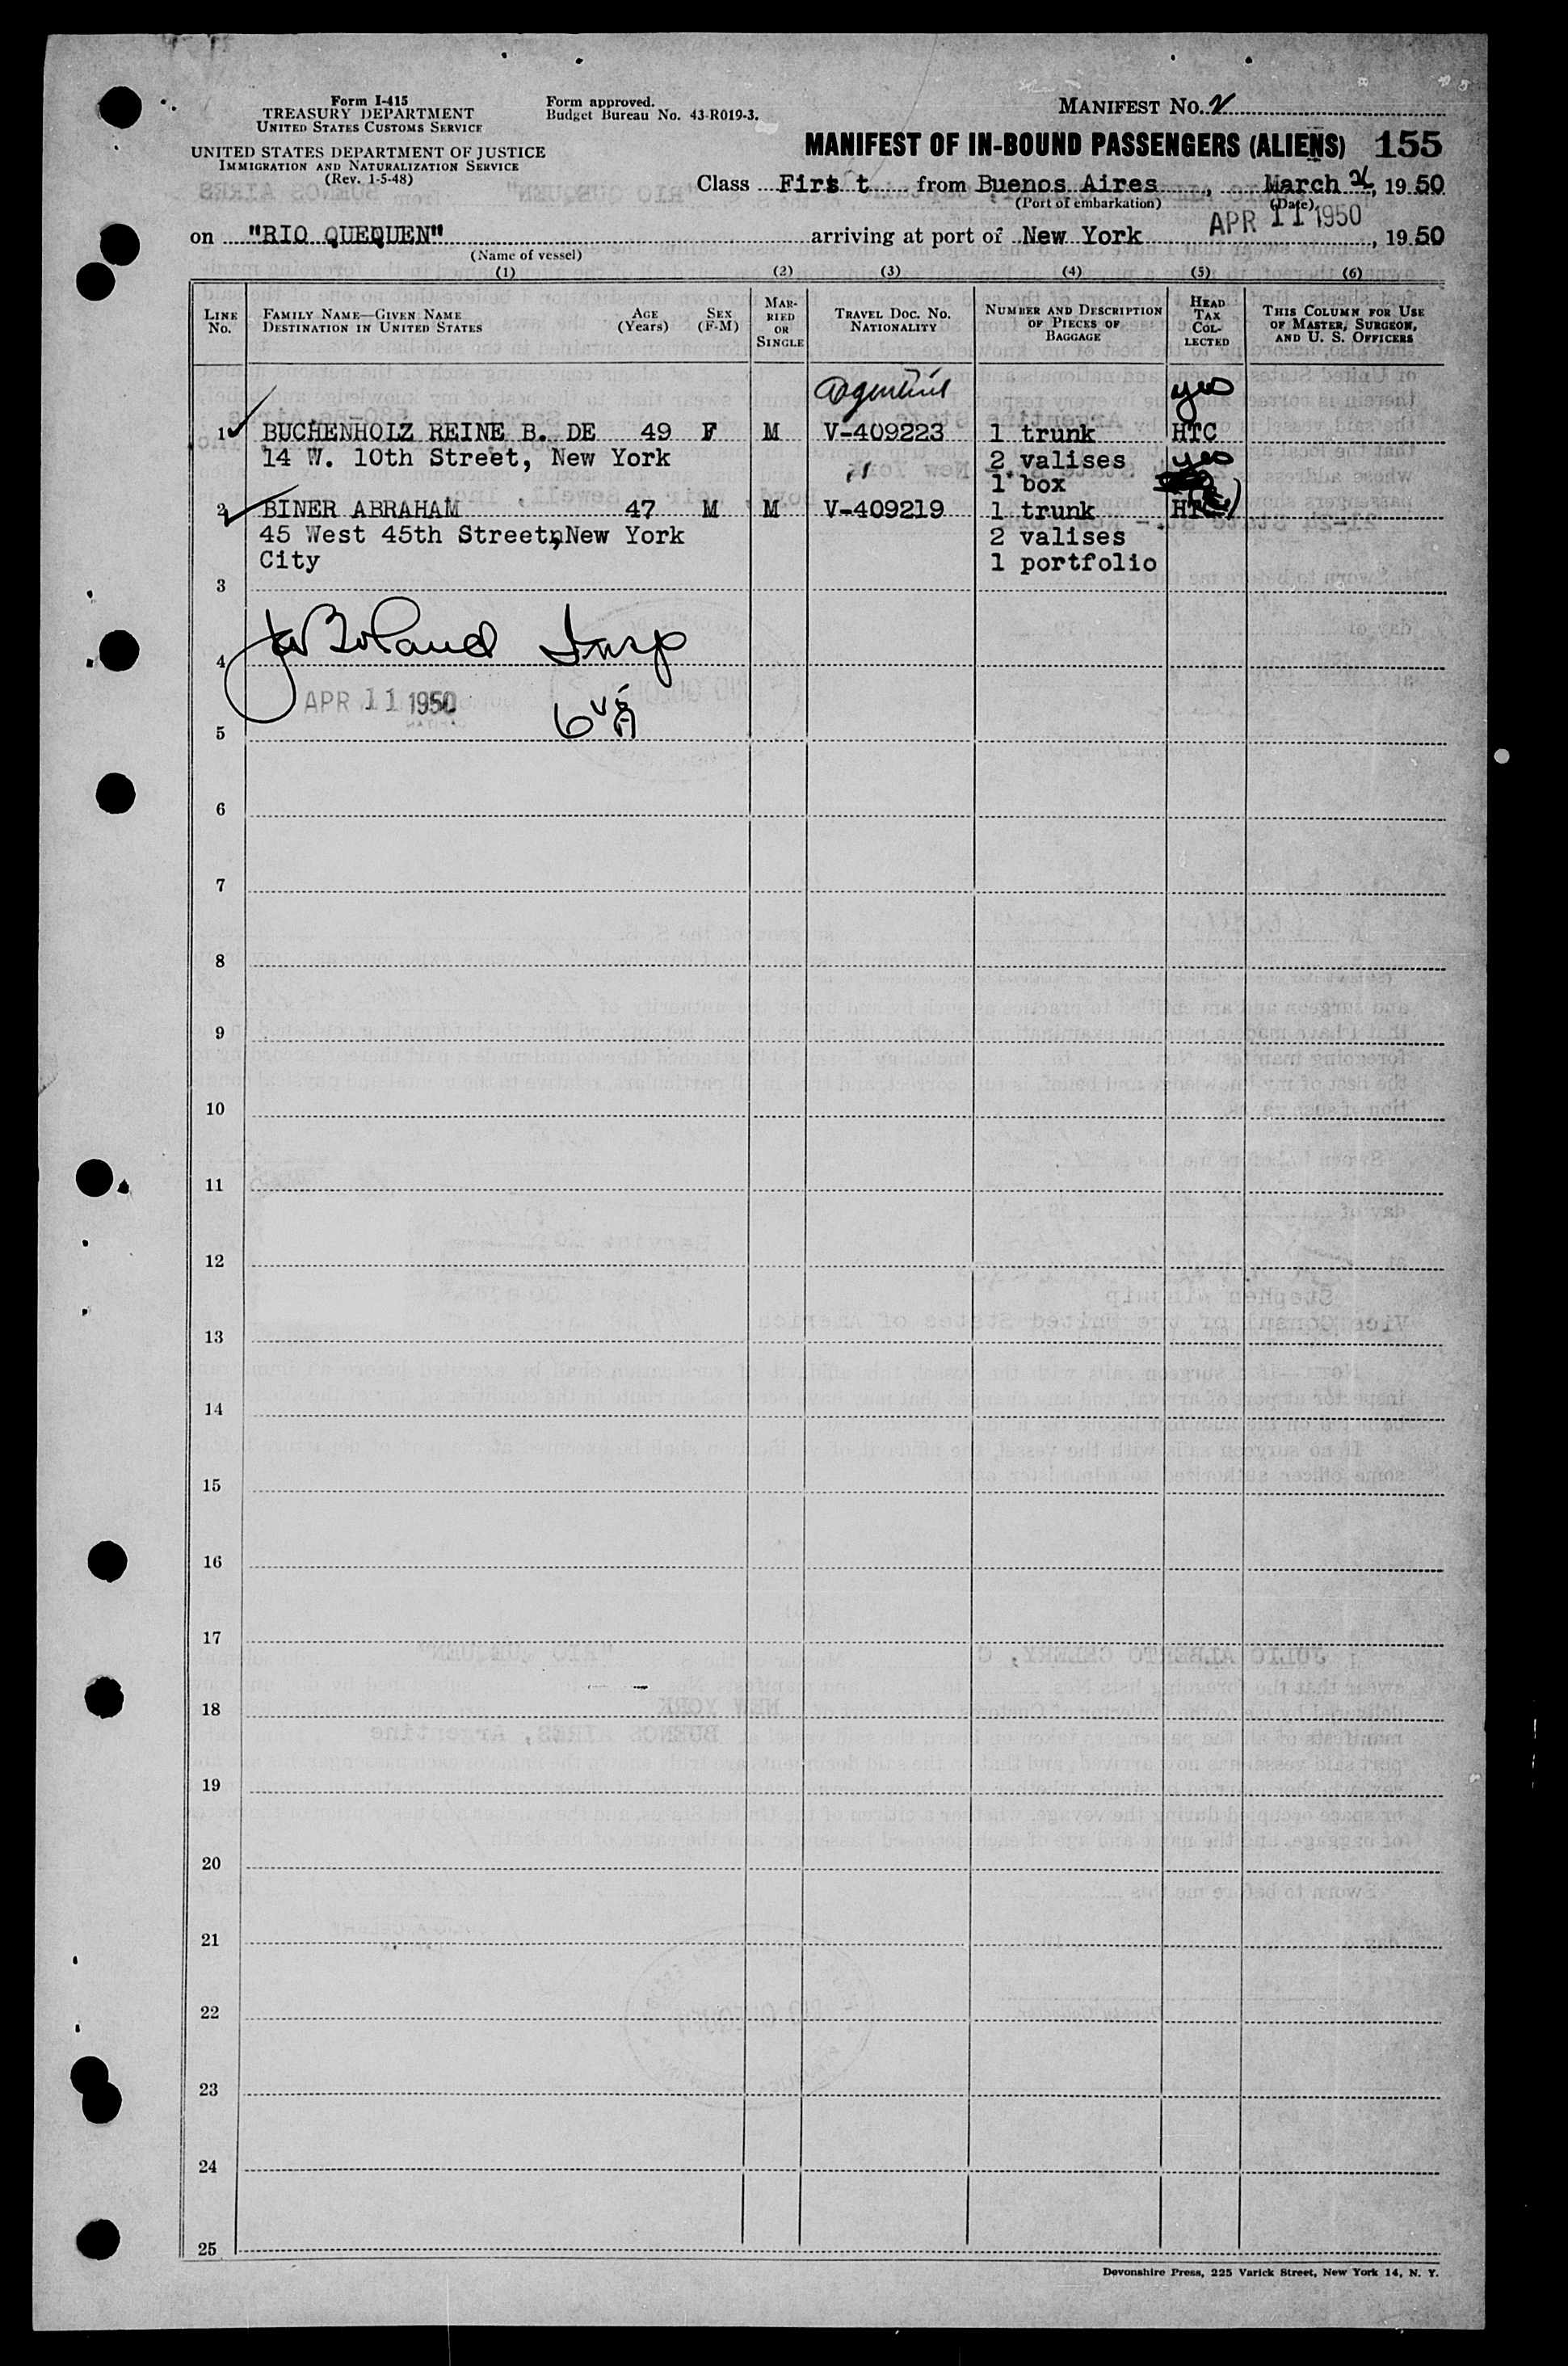 Form I-415
TREASURY DEPARTMENT
UNITED STATES CUSTOMS SERVICE
UNITED STATES DEPARTMENT OF JUSTICE
IMMIGRATION AND NATURALIZATION SERVICE
(Rev. 1-5-48)
Form approved.
Budget Bureau No. 43-R019-3.
MANIFEST No.
MANIFEST OF IN-BOUND PASSENGERS (ALIENS) 155
Class Firs t from Buenos Aires, March, 1950
(Port of embarkation) (Date)
APR 11 1950
on "RIO QUEQUEN" arriving at port of New York, 1950
(Name of vessel)
(1) (2) (3) (4) (5) (6)
LINE No.
FAMILY NAME—GIVEN NAME
DESTINATION IN UNITED STATES
AGE (Years)
SEX (F-M)
MARRIED OR SINGLE
TRAVEL DOC. NO. NATIONALITY
NUMBER AND DESCRIPTION OF PIECES OF BAGGAGE
HEAD TAX COLLECTED
THIS COLUMN FOR USE OF MASTER, SURGEON, AND U. S. OFFICERS
Argentine yes
1 BUCHENHOLZ REINE B. DE 49 F M V-409223 1 trunk HTC
14 W. 10th Street, New York " 2 valises yes
1 box
2 BINER ABRAHAM 47 M M V-409219 1 trunk HTC
45 West 45th Street, New York 2 valises
City 1 portfolio
3
Boland Insp
4
APR 11 1950
5
6
7
8
9
10
11
12
13
14
15
16
17
18
19
20
21
22
23
24
25
Devonshire Press, 225 Varick Street, New York 14, N. Y.